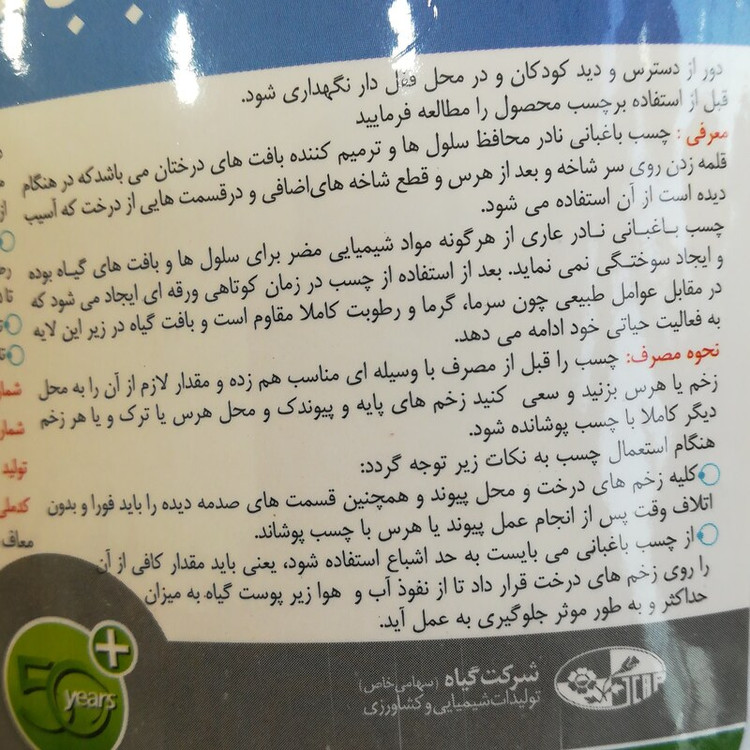 دور از دسترس و دید کودکان و در محل قفل دار نگهداری شود.
قبل از استفاده برچسب محصول را مطالعه فرمایید
معرفی: چسب باغبانی نادر محافظ سلول ها و ترمیم کننده بافت های درختان می باشدکه در هنگام
قلمه زدن روی سر شاخه و بعد از هرس و قطع شاخه های اضافی و درقسمت هایی از درخت که آسیب
دیده است از آن استفاده می شود.
چسب باغبانی نادر عاری از هرگونه مواد شیمیایی مضر برای سلول ها و بافت های گیاه بوده
و ایجاد سوختگی نمی نماید. بعد از استفاده از چسب در زمان کوتاهی ورقه ای ایجاد می شود که
در مقابل عوامل طبیعی چون سرما، گرما و رطوبت کاملا مقاوم است و بافت گیاه در زیر این لایه
به فعالیت حیاتی خود ادامه می دهد.
نحوه مصرف: چسب را قبل از مصرف با وسیله ای مناسب هم زده و مقدار لازم از آن را به محل
زخم یا هرس بزنید و سعی کنید زخم های پایه و پیوندک و محل هرس یا ترک و یا هر زخم
دیگر کاملا با چسب پوشانده شود.
هنگام استعمال چسب به نکات زیر توجه گردد:
کلیه زخم های درخت و محل پیوند و همچنین قسمت های صدمه دیده را باید فورا و بدون
اتلاف وقت پس از انجام عمل پیوند یا هرس با چسب پوشاند.
از چسب باغبانی می بایست به حد اشباع استفاده شود، یعنی باید مقدار کافی از آن
را روی زخم های درخت قرار داد تا از نفوذ آب و هوا زیر پوست گیاه به میزان
حداکثر و به طور موثر جلوگیری به عمل آید.
شمار
شمار
تولید
کدملی
معاف
شرکت گیاه (سهامی خاص)
تولیدات شیمیایی و کشاورزی
50+
years